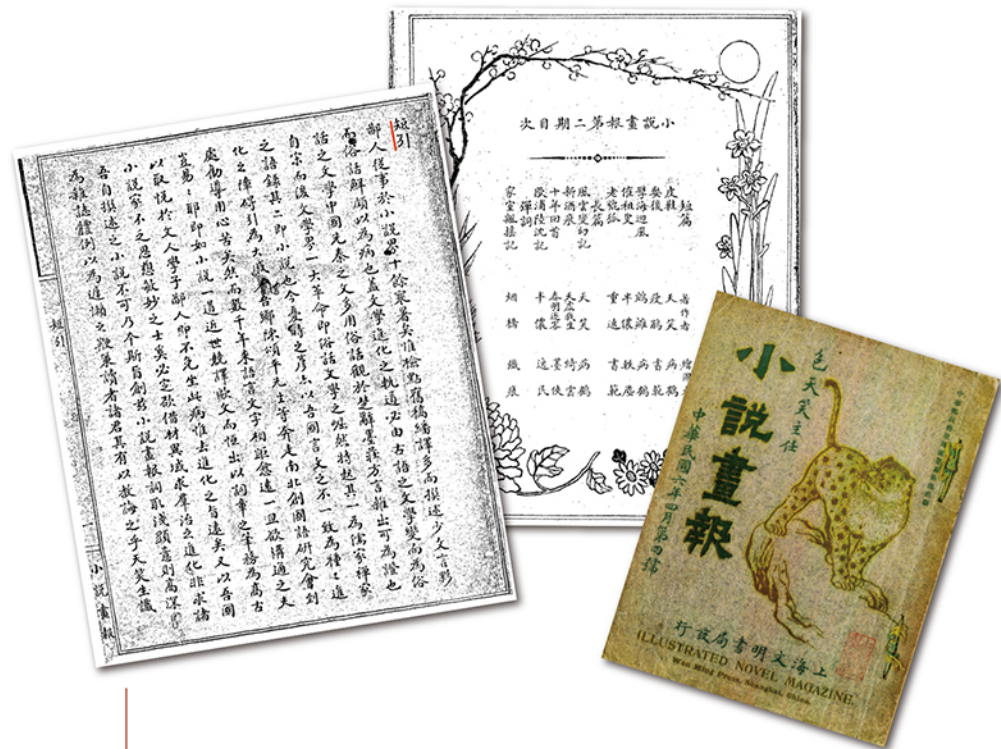 短引
鄙人從事於小說界十餘寒暑矣惟檢點舊稿繙譯多而撰述少文言夥
而俗話尠頗以為病也蓋文學進化之軌道必由古語之文學變而為俗
話之文學中國先秦之文多用俗話觀於楚辭墨莊方言雜出可為證也
自宋而後文學界一大革命即俗話文學之崛然特起其一為儒家禪家
之語錄其二即小說也今憂時之彥亦以吾國言文之不一致為種種進
化之障碍引為大戚若吾鄉陳頌平先生等奔走南北創國語研究會到
處勸導用心苦矣然而數千年來語言文字相距愈遠一旦欲溝通之夫
豈易易耶即如小說一道近世競譯歐文而恒出以詞章之筆務為高古
以取悅於文人學子鄙人即不免坐此病惟去進化之旨遠矣又以吾國
小說家不乏思想敏妙之士奚必定欲借材異域求羣治之進化非求諸
吾自撰述之小說不可乃本斯旨創茲小說畫報詞取淺顯意則高深
為雜誌體例以為遲懶之鞭策讀者諸君其有以教誨之乎天笑生識
短引
一
小說畫報
小說畫報第二期目次
短篇 著作者
皮鞋 天笑 病鶴
學海迴風
催租吏 半儂
老虢狐
長篇
風雲變幻記 天笑 病鶴
新酒痕
十年回首
歇浦陸沈記 半儂
彈詞
家室飄搖記 烟橋
包天笑主任
小說畫報
中華民國六年四月第四號
上海文明書局設行
ILLUSTRATED NOVEL MAGAZINE.
Wen Ming Press, Shanghai, China.